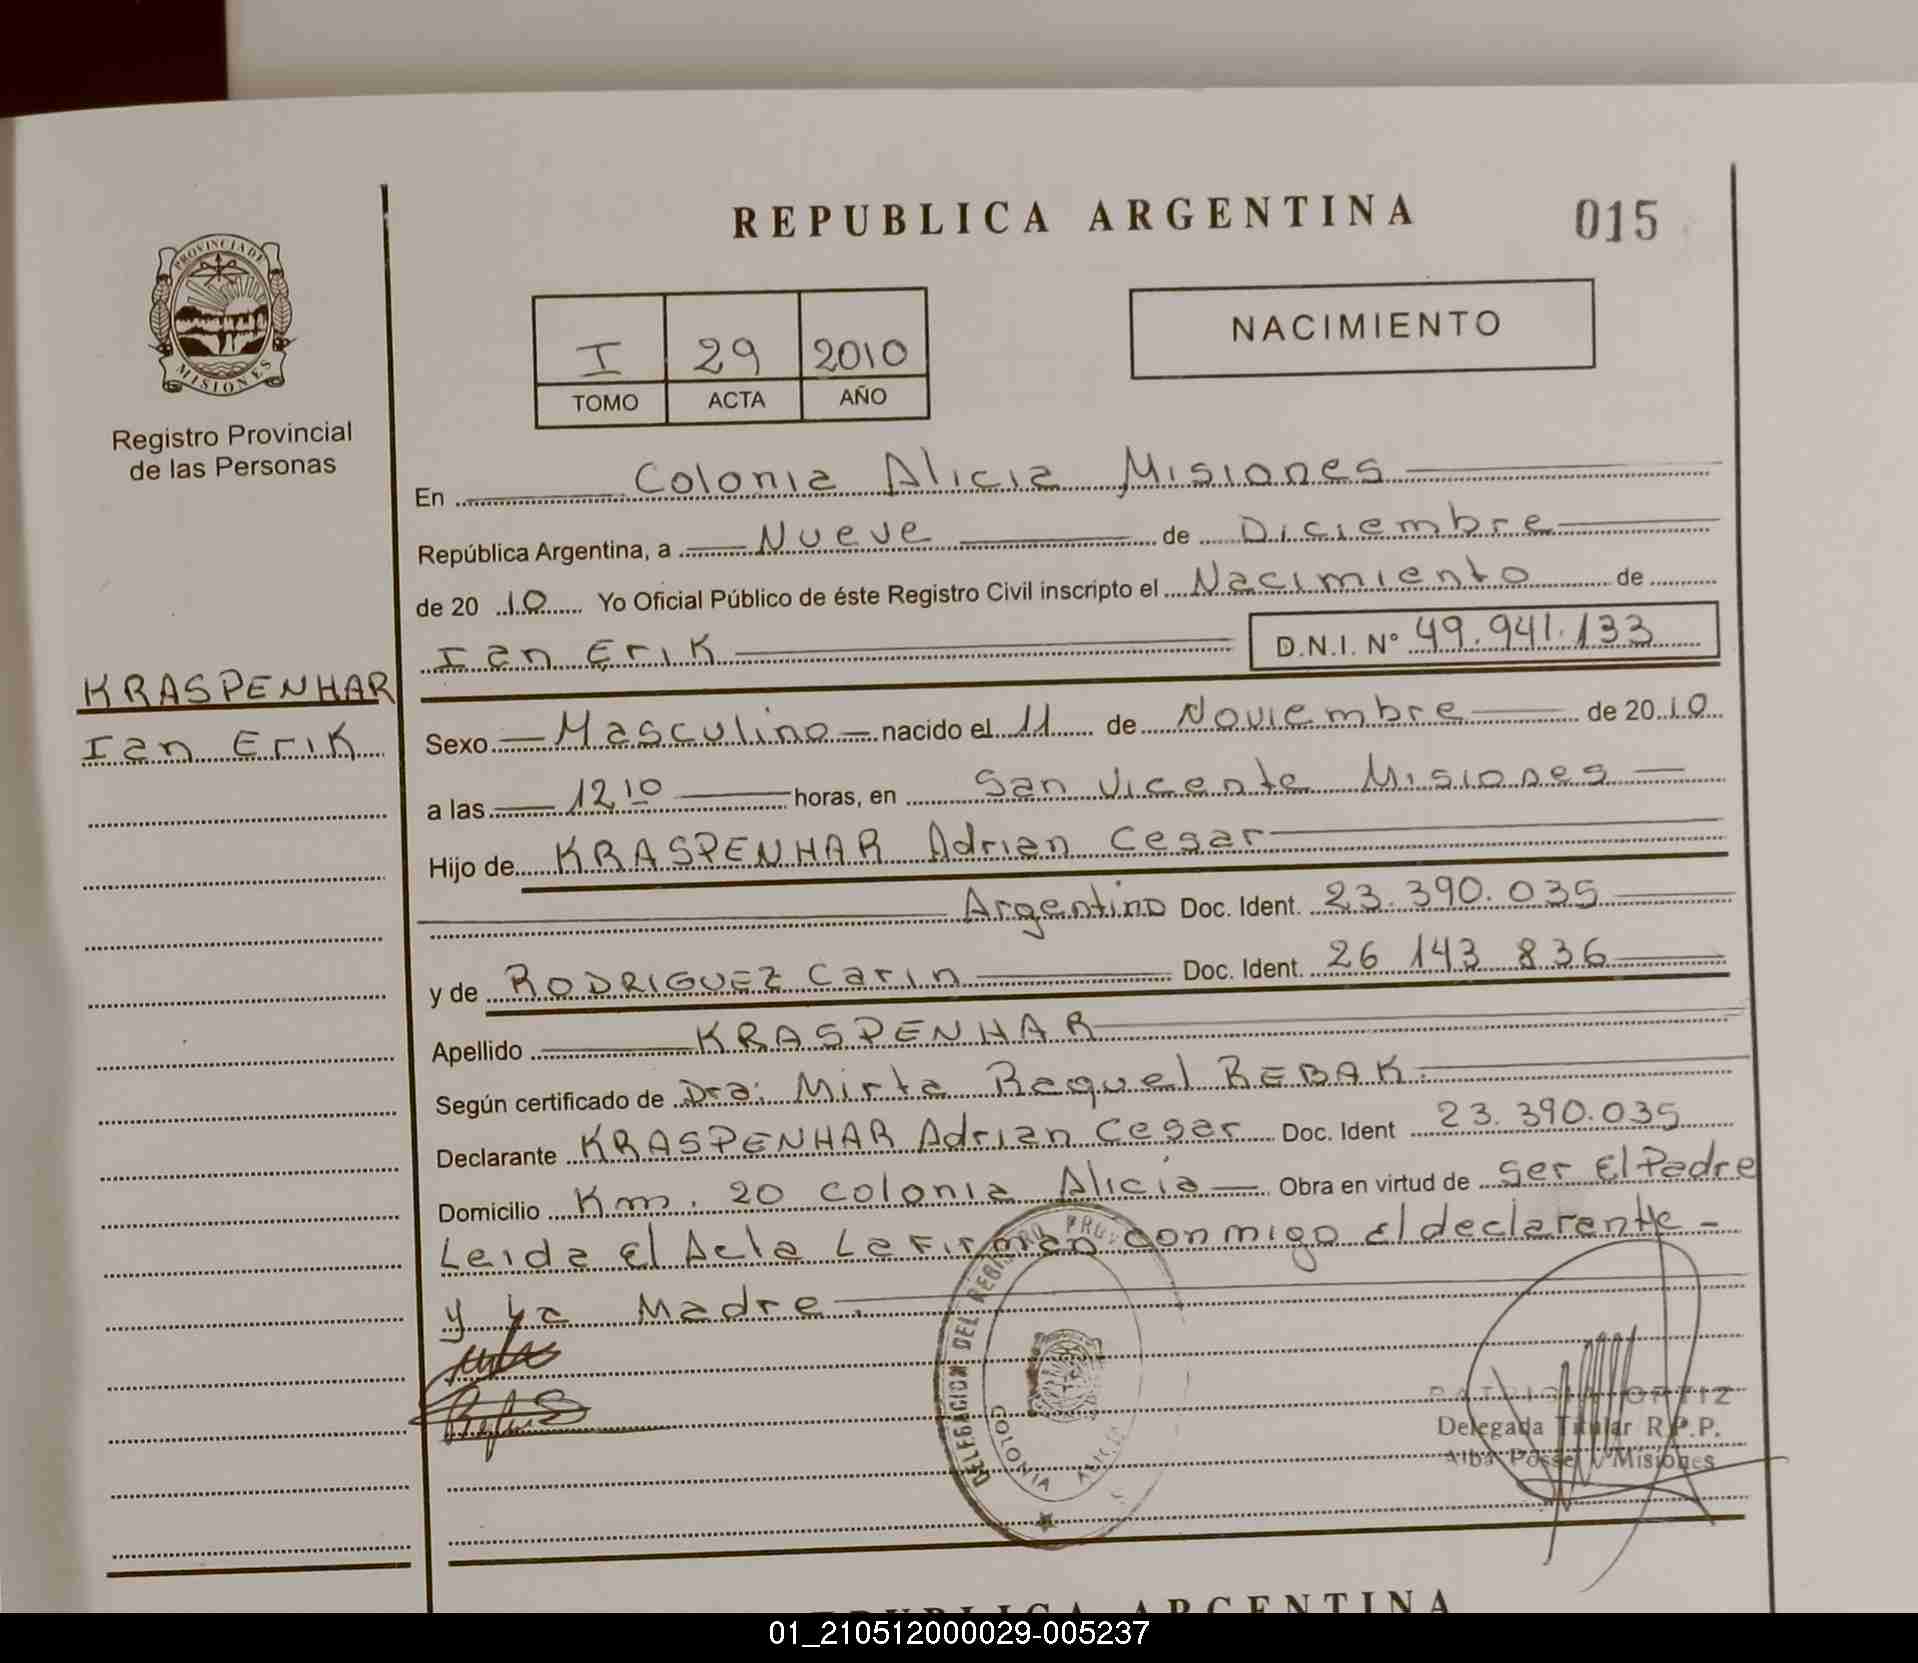 REPUBLICA ARGENTINA
015
PROVINCIA DE
MISIONES
Registro Provincial
de las Personas
I 29 2010
TOMO ACTA AÑO
NACIMIENTO
En Colonia Alicia Misiones
República Argentina, a Nueve de Diciembre
de 20 10 Yo Oficial Público de éste Registro Civil inscripto el Nacimiento de
Ian Erik D.N.I. Nº 49.941.133
KRASPENHAR
Ian Erik
Sexo Masculino nacido el 11 de Noviembre de 20 10
a las 12 10 horas, en San Vicente Misiones
Hijo de KRASPENHAR Adrian Cesar
Argentino Doc. Ident. 23.390.035
y de RODRIGUEZ Carin Doc. Ident. 26 143 836
Apellido KRASPENHAR
Según certificado de Dra: Mirta Raquel REBAK.
Declarante KRASPENHAR Adrian Cesar Doc. Ident 23.390.035
Domicilio Km. 20 Colonia Alicia Obra en virtud de Ser El Padre
Leida El Acta La Firman conmigo El declarante
y La Madre.
DELEGACION DEL REGISTRO PROV
COLONIA ALICIA
PATRICIA ORTIZ
Delegada Titular R.P.P.
Alba Posse Misiones
REPUBLICA ARGENTINA
01_210512000029-005237